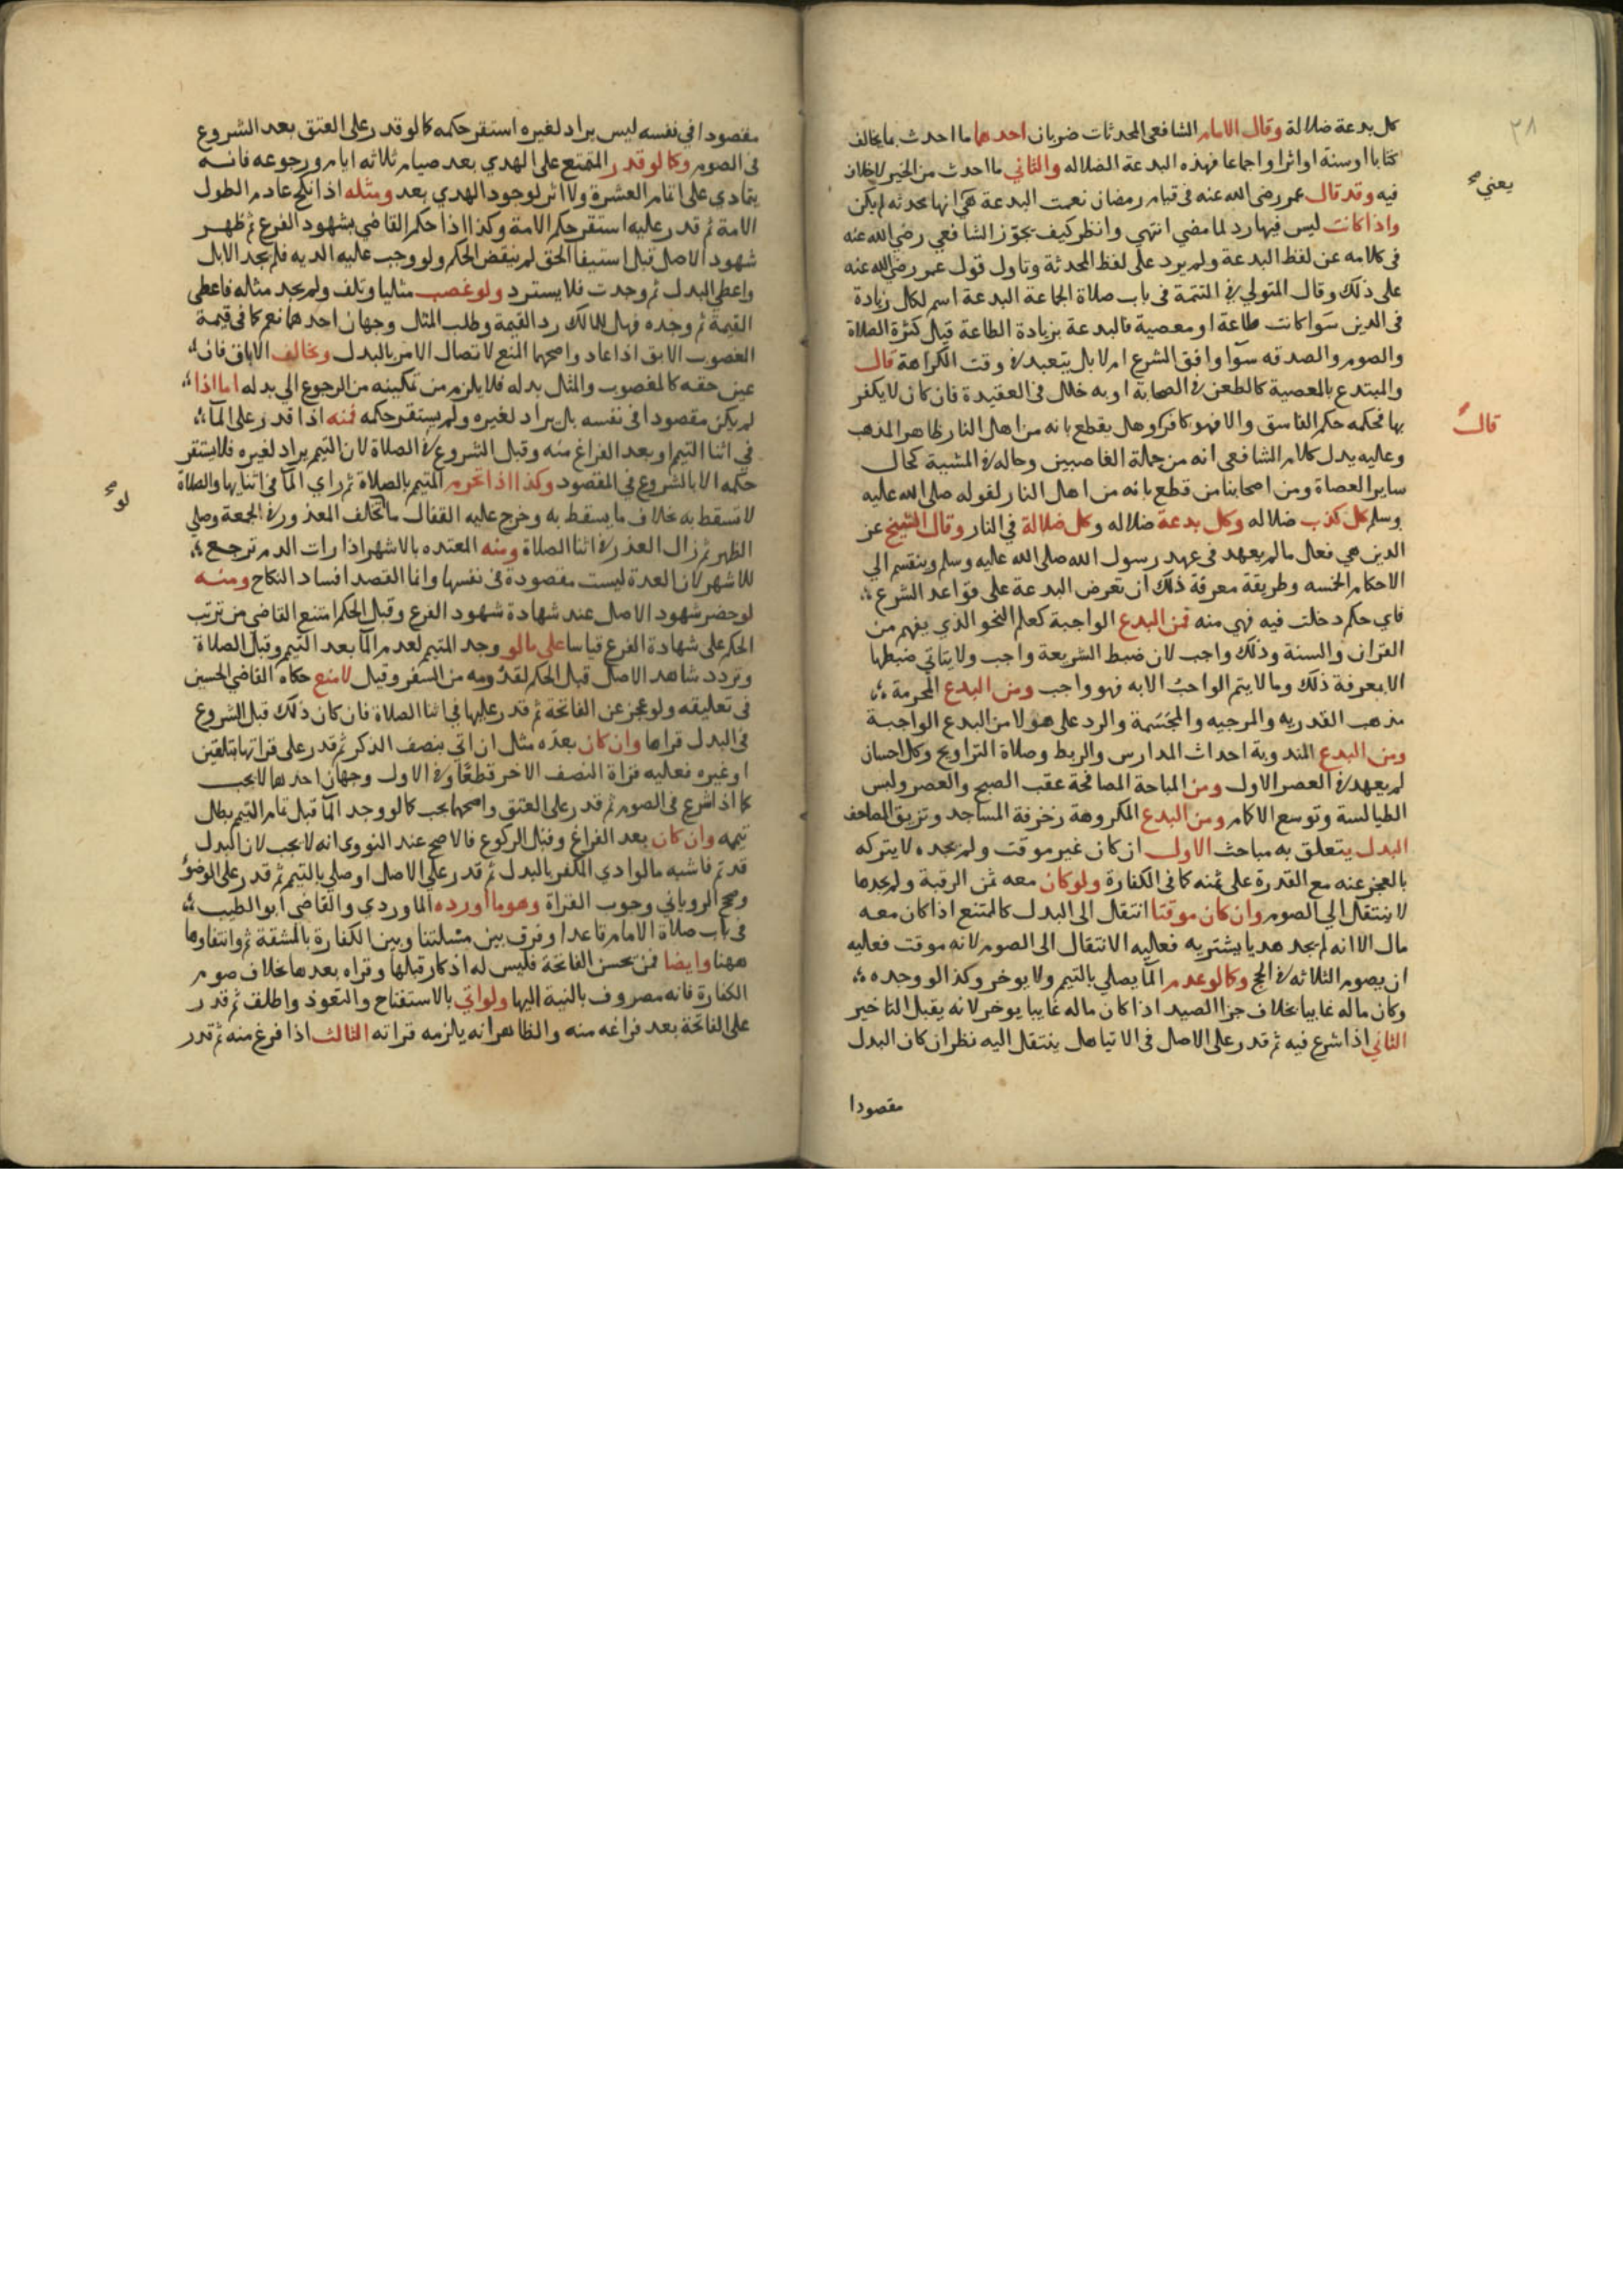 ٢٨
كل بدعة ضلالة وقال الامام الشافعي المحدثات ضربان احدهما ما احدث مما يخالف
كتابا او سنة او اثرا او اجماعا فهذه البدعة الضلاله والثاني ما احدث من الخير لا خلاف
فيه وقد قال عمر رضي الله عنه في قيام رمضان نعمت البدعة هي انها محدثه لم يكن
يعني صح
واذا كانت ليس فيها رد لما مضي انتهي وانظر كيف تجوز الشافعي رضي الله عنه
في كلامه عن لفظ البدعة ولم يرد علي لفظ المحدثة وتاول قول عمر رضي الله عنه
على ذلك وقال المتولي في التتمة في باب صلاة الجماعة البدعة اسم لكل زيادة
في الدين سوا كانت طاعة او معصية فالبدعة بزيادة الطاعة قبل كثرة الصلاة
والصوم والصدقه سوآ وافق الشرع ام لا بل يتعبد في وقت الكراهة قال
والمبتدع بالمعصية كالطعن في الصحابة او به خلل في العقيدة فان كان لا يكفر
بها فحكمه حكم الفاسق والا فهو كافر وهل يقطع بانه من اهل النار ظاهر المذهب
قال
وعليه يدل كلام الشافعي انه من جملة الغاصبين وحاله في المشية كحال
ساير العصاة ومن اصحابنا من قطع بانه من اهل النار لقوله صلى الله عليه
وسلم كل كذب ضلاله وكل بدعة ضلاله وكل ضلالة في النار وقال الشيخ عز
الدين هي فعل ما لم يعهد في عهد رسول الله صلي الله عليه وسلم وينقسم الي
الاحكام الخمسه وطريقة معرفة ذلك ان تعرض البدعة علي قواعد الشرع
فاي حكم دخلت فيه فهي منه فمن البدع الواجبة كعلم النحو الذي يفهم من
القران والسنة وذلك واجب لان ضبط الشريعة واجب ولا يتاتي ضبطها
الا بمعرفة ذلك وما لا يتم الواجب الا به فهو واجب ومن البدع المحرمة
مذهب القدريه والمرجيه والمجسمة والرد علي هولا من البدع الواجبة
ومن البدع المندوبة احداث المدارس والربط وصلاة التراويح وكل احسان
لم يعهد في العصر الاول ومن المباحة المصافحة عقب الصبح والعصر ولبس
الطيالسة وتوسع الاكمام ومن البدع المكروهة زخرفة المساجد وتزيق المصاحف
البدل يتعلق به مباحث الاول ان كان غير موقت ولم يجده لا يتركه
بالعجز عنه مع القدرة على ثمنه كما في الكفارة ولو كان معه ثمن الرقبة ولم يجدها
لا ينتقل الي الصوم وان كان موقتا انتقل الي البدل كالمتمتع اذا كان معه
مال الا انه لم يجد هديا يشتريه فعليه الانتقال الى الصوم لانه موقت فعليه
ان يصوم الثلاثه في الحج وكما لو عدم المآ يصلي بالتيمم ولا يوخر وكذا لو وجده
وكان ماله غايبا بخلاف جزا الصيد اذا كان ماله غايبا يوخر لانه يقبل التاخير
الثاني اذا شرع فيه ثم قدر على الاصل في الاتيا هل ينتقل اليه نظر ان كان البدل
مقصودا
مقصودا في نفسه ليس يراد لغيره استقر حكمه كما لو قدر على العتق بعد الشروع
في الصوم وكما لو قدر المتمتع على الهدي بعد صيام ثلاثه ايام ورجوعه فانه
يتمادي على اتمام العشرة ولا اثر لوجود الهدي بعد ومثله اذا نكح عادم الطول
الامة ثم قدر عليه استقر حكم الامة وكذا اذا حكم القاضي بشهود الفرع ثم ظهر
شهود الاصل قبل استيفا الحق لم ينقض الحكم ولو وجب عليه الديه فلم يجد الابل
واعطي البدل ثم وجدت فلا يسترد ولو غصب مثليا وتلف ولم يجد مثله فاعطى
القيمة ثم وجده فهل للمالك رد القيمة وطلب المثل وجهان احدهما نعم كما في قيمة
المغصوب الابق اذا عاد واصحهما المنع لاتصال الامر بالبدل ويخالف الاباق فان
عين حقه كالمغصوب والمثل بدله فلا يلزم من تمكينه من الرجوع الي بدله اما اذا
لم يكن مقصودا في نفسه بل يراد لغيره ولم يستقر حكمه فمنه اذا قدر على المآ
في اثنا التيمم او بعد الفراغ منه وقبل الشروع في الصلاة لان التيمم يراد لغيره فلا يستقر
حكمه الا بالشروع في المقصود وكذا اذا تحرم المتيمم بالصلاة ثم راي المآ في اثنايها والصلاة
لو صح
لا تسقط به بخلاف ما يسقط به وخرج عليه القفال ما تخلف المعذور في الجمعة وصلي
الظهر ثم زال العذر في اثنا الصلاة ومنه المعتده بالاشهر اذا رات الدم ترجع
للاشهر لان العدة ليست مقصودة في نفسها وانما القصد افساد النكاح ومنه
لو حضر شهود الاصل عند شهادة شهود الفرع وقبل الحكم امتنع القاضي من ترتب
الحكم على شهادة الفرع قياسا على ما لو وجد المتيمم لعدم المآ بعد التيمم وقبل الصلاة
وتردد شاهد الاصل قبل الحكم لقدومه من السفر وقيل لا منع حكاه القاضي الحسين
في تعليقه ولو عجز عن الفاتحة ثم قدر عليها في اثنا الصلاة فان كان ذلك قبل الشروع
في البدل قراها وان كان بعده مثل ان اتي بنصف الذكر ثم قدر على قراتها بتلقين
او غيره فعليه قراة النصف الاخر قطعا وفي الاول وجهان احدهما لا يجب
كما اذا شرع في الصوم ثم قدر على العتق واصحهما يجب كما لو وجد المآ قبل تمام التيمم يبطل
تيممه وان كان بعد الفراغ وقبل الركوع فالاصح عند النووي انه لا يجب لان البدل
قد تم فاشبه ما لو ادي المكفر بالبدل ثم قدر على الاصل او صلي بالتيمم ثم قدر على الوضو
وصحح الروياني وجوب القراة وهو ما اورده الماوردي والقاضي ابو الطيب
في باب صلاة الامام قاعدا وفرق بين مسئلتنا وبين الكفارة بالمشقة ثم وانتفاوها
ههنا وايضا فمن يحسن الفاتحة فليس له اذكار قبلها وقراه بعدها بخلاف صوم
الكفارة فانه مصروف بالنية اليها ولو اتي بالاستفتاح والتعوذ واطلق ثم قدر
على الفاتحة بعد فراغه منه والظاهر انه يلزمه قراته الثالث اذا فرغ منه ثم قدر